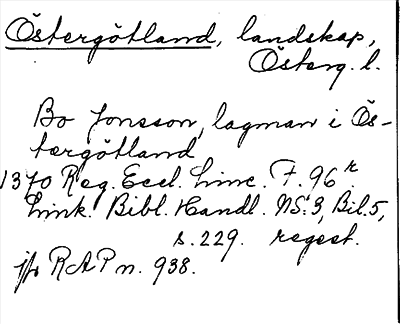 Östergötland, landskap,
Österg. l.
Bo Jonsson, lagman i Ös-
tergötland
1370 Reg. Eccl. Linc. F. 96 r.
Link. Bibl. Handl. NS: 3, Bil. 5,
s. 229. regest.
jfr RAP n. 938.